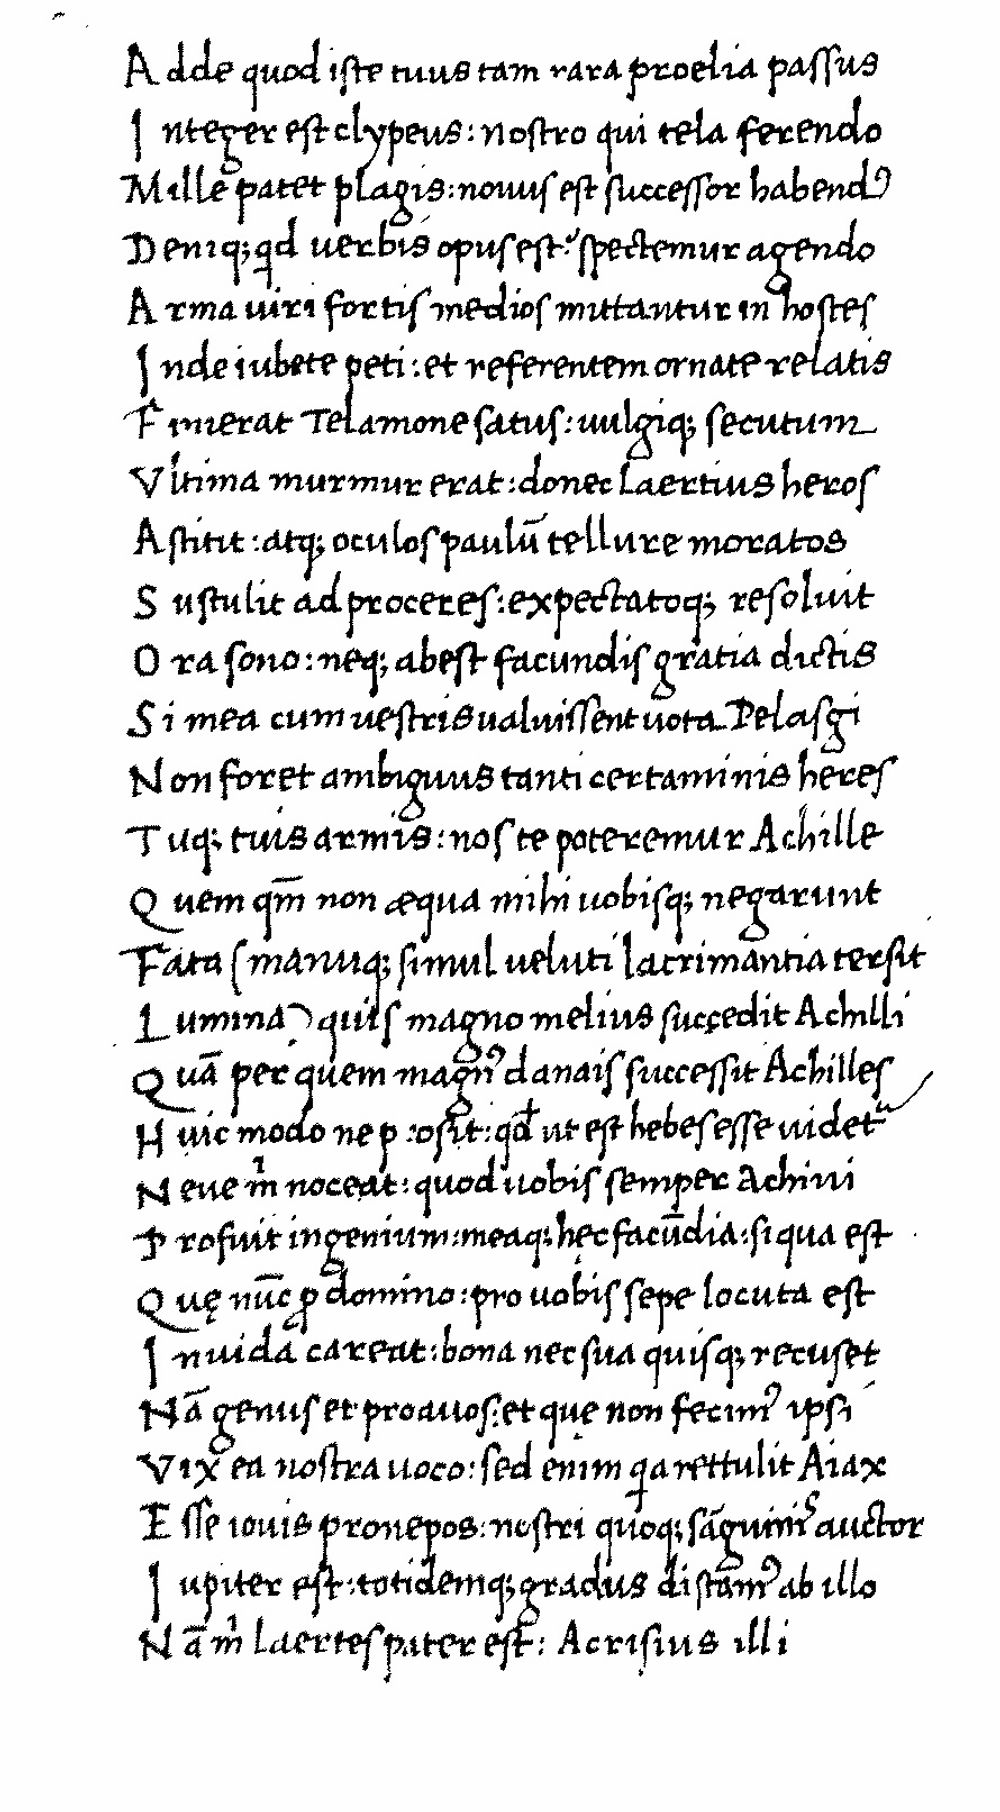 Adde quod iste tuus tam rara proelia passus
Integer est clypeus: nostro qui tela ferendo
Mille patet plagis: nouus est successor habendꝰ
Deniq; qd uerbis opus est? spectemur agendo
Arma uiri fortis medios mittantur in hostes
Inde iubete peti: et referentem ornate relatis
Finierat Telamone satus: uulgiq; secutum
Vltima murmur erat: donec Laertius heros
Astitit: atq; oculos paulū tellure moratos
Sustulit ad proceres: expectatoq; resoluit
Ora sono: neq; abest facundis gratia dictis
Si mea cum uestris ualuissent uota Pelasgi
Non foret ambiguus tanti certaminis heres
Tuq; tuis armis: nos te poteremur Achille
Quem qm̄ non æqua mihi uobisq; negarunt
Fata (manuq; simul ueluti lacrimantia tersit
Lumina) quis magno melius succedit Achilli
Quā per quem magnꝰ danais successit Achilles
Huic modo ne prosit: qđ ut est hebes esse uidetᵃ
Neue mͥ noceat: quod uobis semper Achiui
Profuit ingenium: meaq; hęc facūdia: si qua est
Quę nūc ꝓ domino: pro uobis sepe locuta est
Inuida careat: bona nec sua quisq; recuset
Nā genus et proauos: et quę non fecimꝰ ipsi
Vix ea nostra uoco: sed enim qa rettulit Aiax
Esse iouis pronepos: nostri quoq; sāguinis auctor
Iupiter est: totidemq; gradus distamꝰ ab illo
Nā mͥ laertes pater est: Acrisius illi